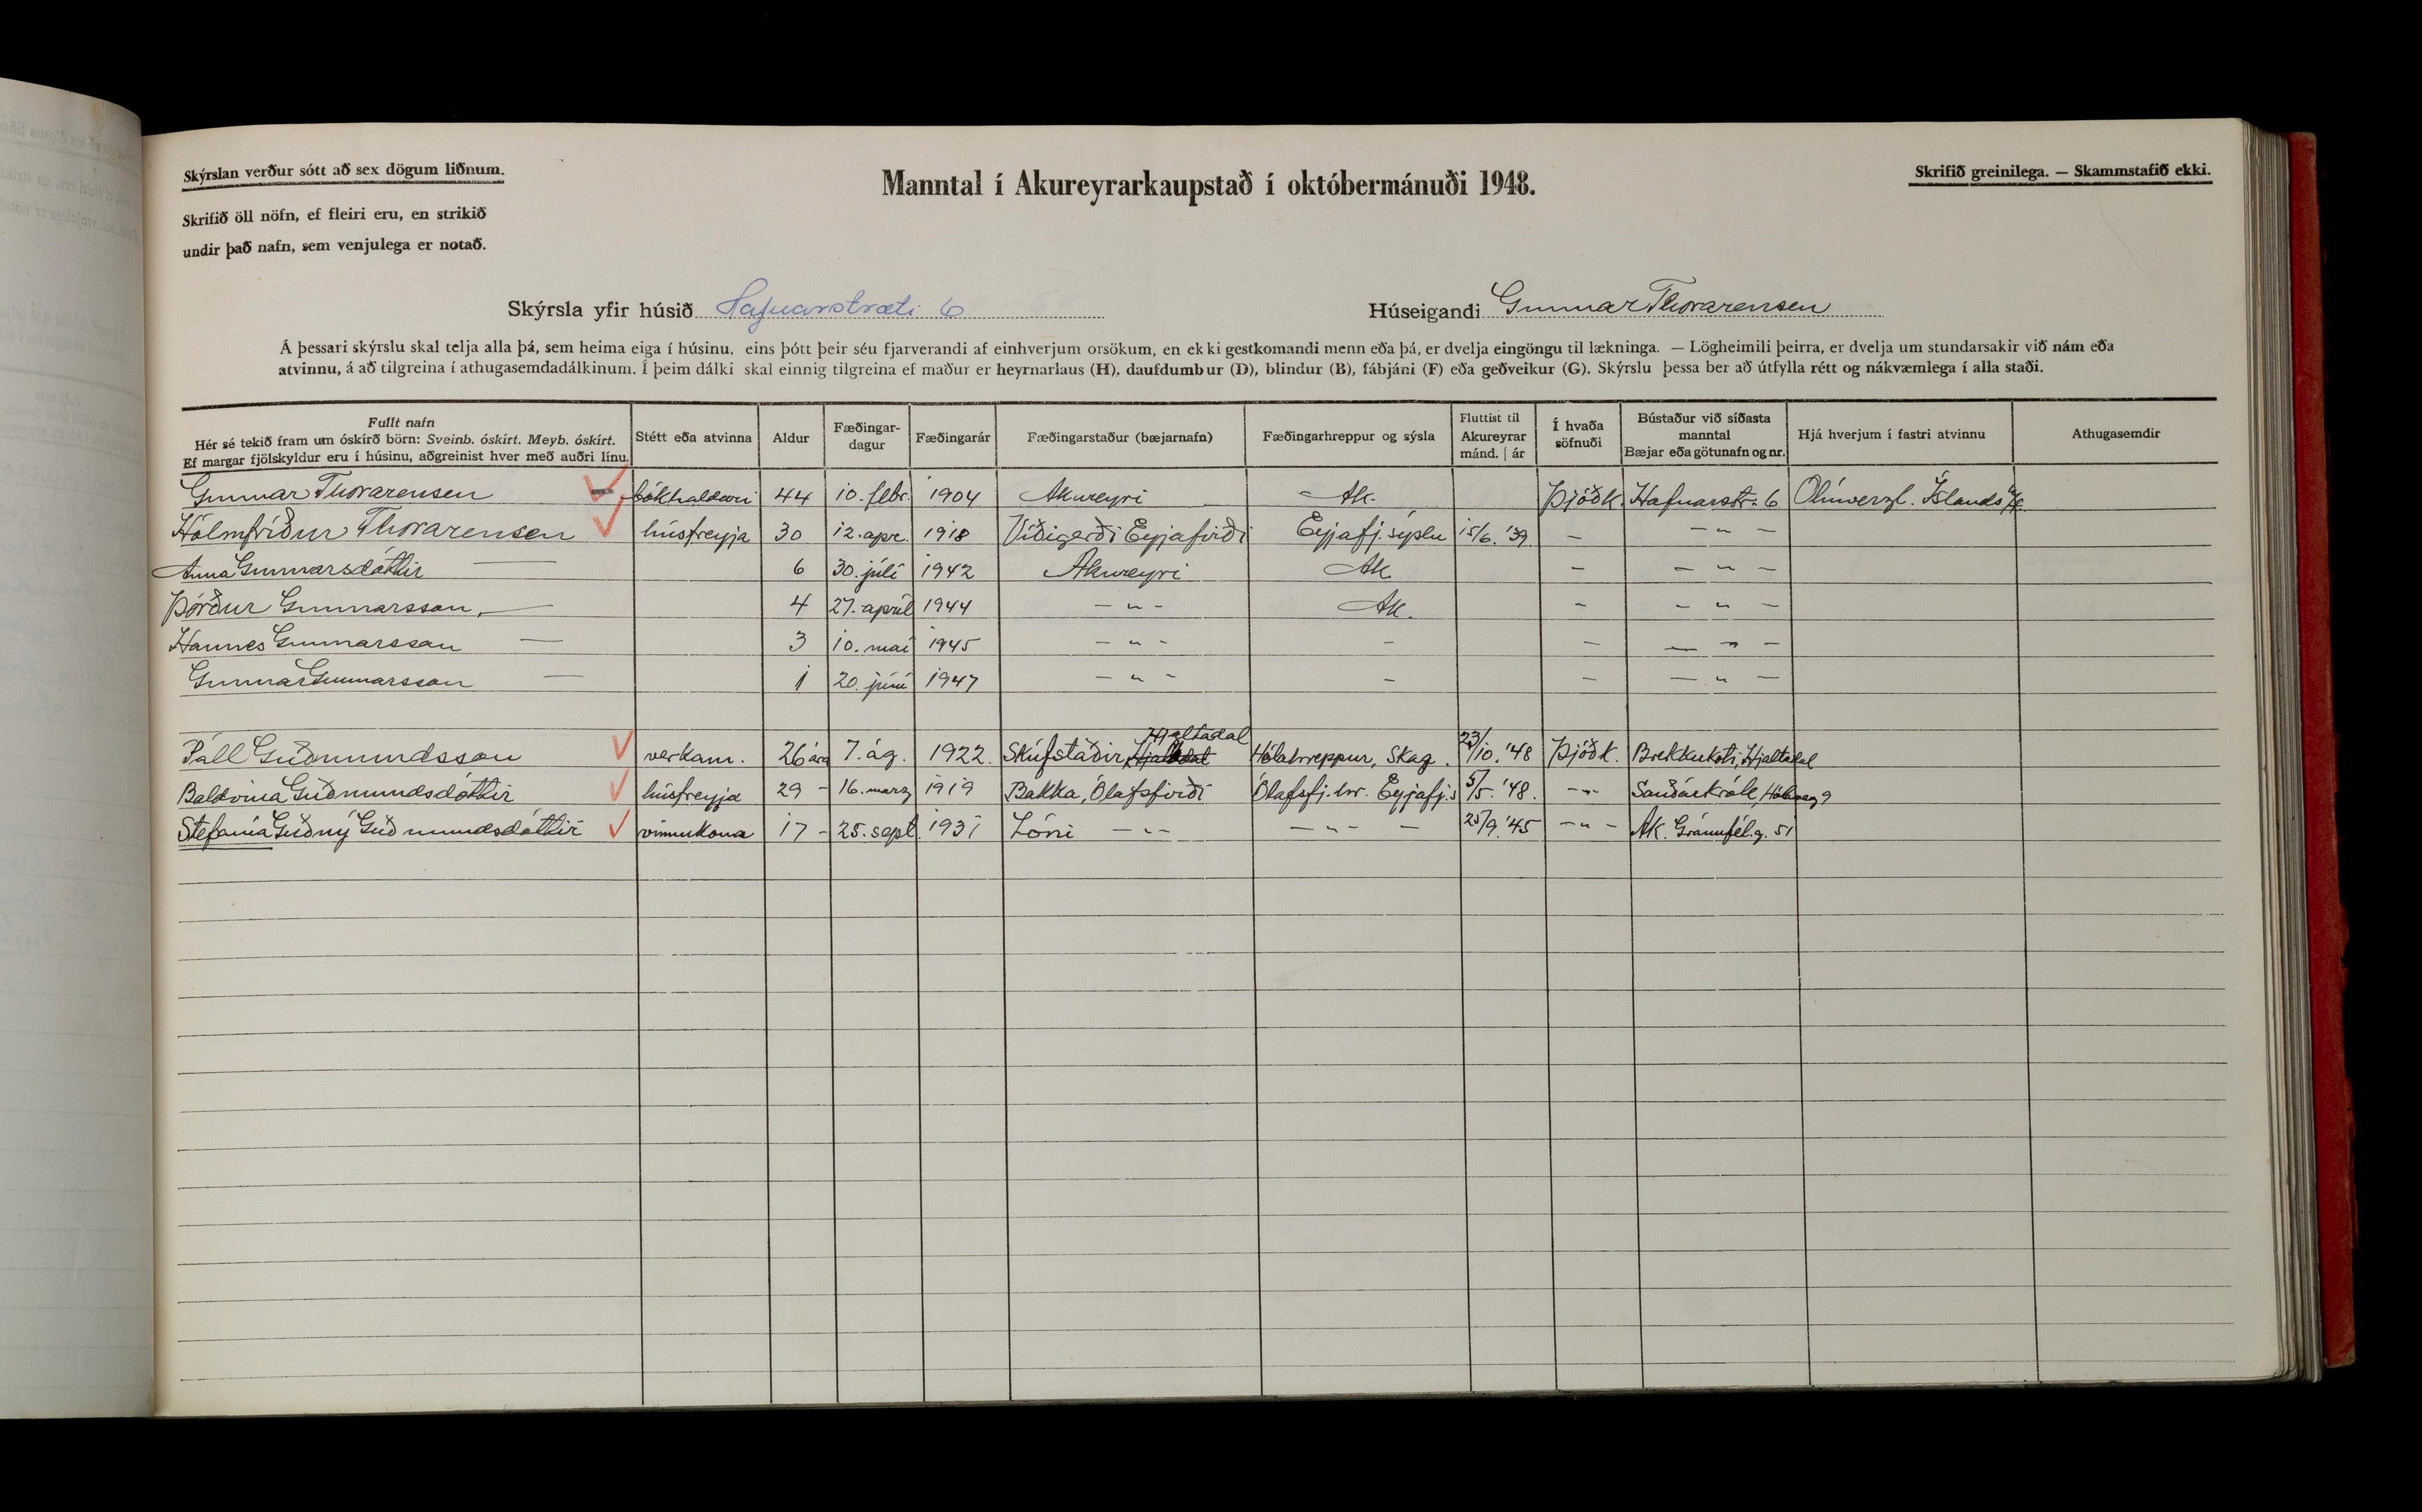 Skýrslan verður sótt að sex dögum liðnum.
Manntal í Akureyrarkaupstað í októbermánuði 1948.
Skrifið greinilega. — Skammstafið ekki.
Skrifið öll nöfn, ef fleiri eru, en strikið
undir það nafn, sem venjulega er notað.
Skýrsla yfir húsið Hafnarstræti 6
Húseigandi Gunnar Thorarensen
Á þessari skýrslu skal telja alla þá, sem heima eiga í húsinu, eins þótt þeir séu fjarverandi af einhverjum orsökum, en ekki gestkomandi menn eða þá, er dvelja eingöngu til lækninga. — Lögheimili þeirra, er dvelja um stundarsakir við nám eða
atvinnu, á að tilgreina í athugasemdadálkinum. Í þeim dálki skal einnig tilgreina ef maður er heyrnarlaus (H), daufdumbur (D), blindur (B), fábjáni (F) eða geðveikur (G). Skýrslu þessa ber að útfylla rétt og nákvæmlega í alla staði.
Fullt nafn
Hér sé tekið fram um óskírð börn: Sveinb. óskírt. Meyb. óskírt.
Ef margar fjölskyldur eru í húsinu, aðgreinist hver með auðri línu.
Stétt eða atvinna
Aldur
Fæðingar-
dagur
Fæðingarár
Fæðingarstaður (bæjarnafn)
Fæðingarhreppur og sýsla
Fluttist til
Akureyrar
mánd. | ár
Í hvaða
söfnuði
Bústaður við síðasta
manntal
Bæjar eða götunafn og nr.
Hjá hverjum í fastri atvinnu
Athugasemdir
Gunnar Thorarensen — bókhaldari 44 10. febr. 1904 Akureyri Ak. Þjóðk. Hafnarstr. 6 Olíuverzl. Íslands h/f.
Hólmfríður Thorarensen húsfreyja 30 12. apr. 1918 Víðigerði Eyjafirði Eyjafj.sýslu 15/6. '39 — — " —
Anna Gunnarsdóttir — 6 30. júlí 1942 Akureyri Ak — — " —
Þórður Gunnarsson, — 4 27. apríl 1944 — " — Ak. — — " —
Hannes Gunnarsson — 3 10. maí 1945 — " — — — — " —
Gunnar Gunnarsson — 1 20. júní 1947 — " — — — — " —
Hjaltadal
Páll Guðmundsson verkam. 26 ára 7. ág. 1922. Skúfstaðir, Hólahreppur, Skag. 23/10. '48 Þjóðk. Brekkukoti, Hjaltadal
Baldvina Guðmundsdóttir húsfreyja 29 - 16. marz 1919 Bakka, Ólafsfirði Ólafsfj.hr. Eyjafj.s 5/5. '48. — " — Sauðárkrók, Hólaveg 9
Stefanía Guðný Guðmundsdóttir vinnukona 17 - 25. sept. 1931 Lóni — " — — " — — 25/9. '45 — " — Ak. Gránufél.g. 51